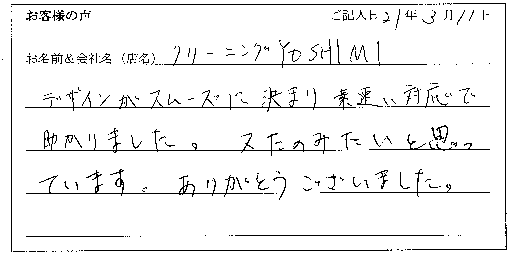 お客様の声 ご記入日 21年3月11日
お名前&会社名（店名） クリーニングYOSHIMI
デザインがスムーズに決まり 素速い対応で
助かりました。 またたのみたいと思っ
ています。 ありがとうございました。